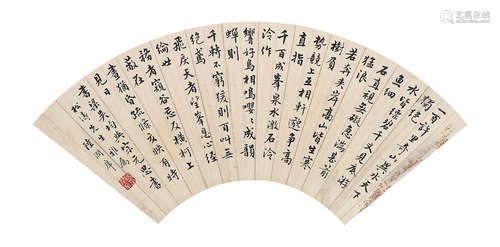 一百許里奇山異水天下
獨絕
水皆縹碧千丈見底游
魚細
石直視無礙急湍甚箭
猛浪
若奔夾岸高山皆生寒
樹負
勢競上互相軒邈爭高
直指
千百成峯泉水激石泠
泠作
響好鳥相鳴嚶嚶成韻
蟬則
千轉不窮猨則百叫無
絕鳶
飛戾天者望峯息心經
綸世
務者窺谷忘反橫柯上
蔽在
晝猶昏疎條交映有時
見日
吳均與宋元思書
松濤先生雅屬
陸潤庠